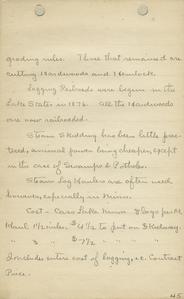 grading rules. Those that remained are
cutting Hardwoods and Hemlock.
Logging Railroads were begun in the
Lake States in 1876. All the Hardwoods
are now railroaded.
Steam Skidding has been little prac-
ticed, animal power being cheaper, except
in the case of Swamps & Potholes.
Steam Log Haulers are often used
however, especially in Minn.
Cost - Cass Lake Minn. 
Haul 1 1/2 miles - $4 1/2 to put on Skidway.
" 3 " - $ - 1/2 "
Includes entire cost of logging, i.e. Contract
Price.
45